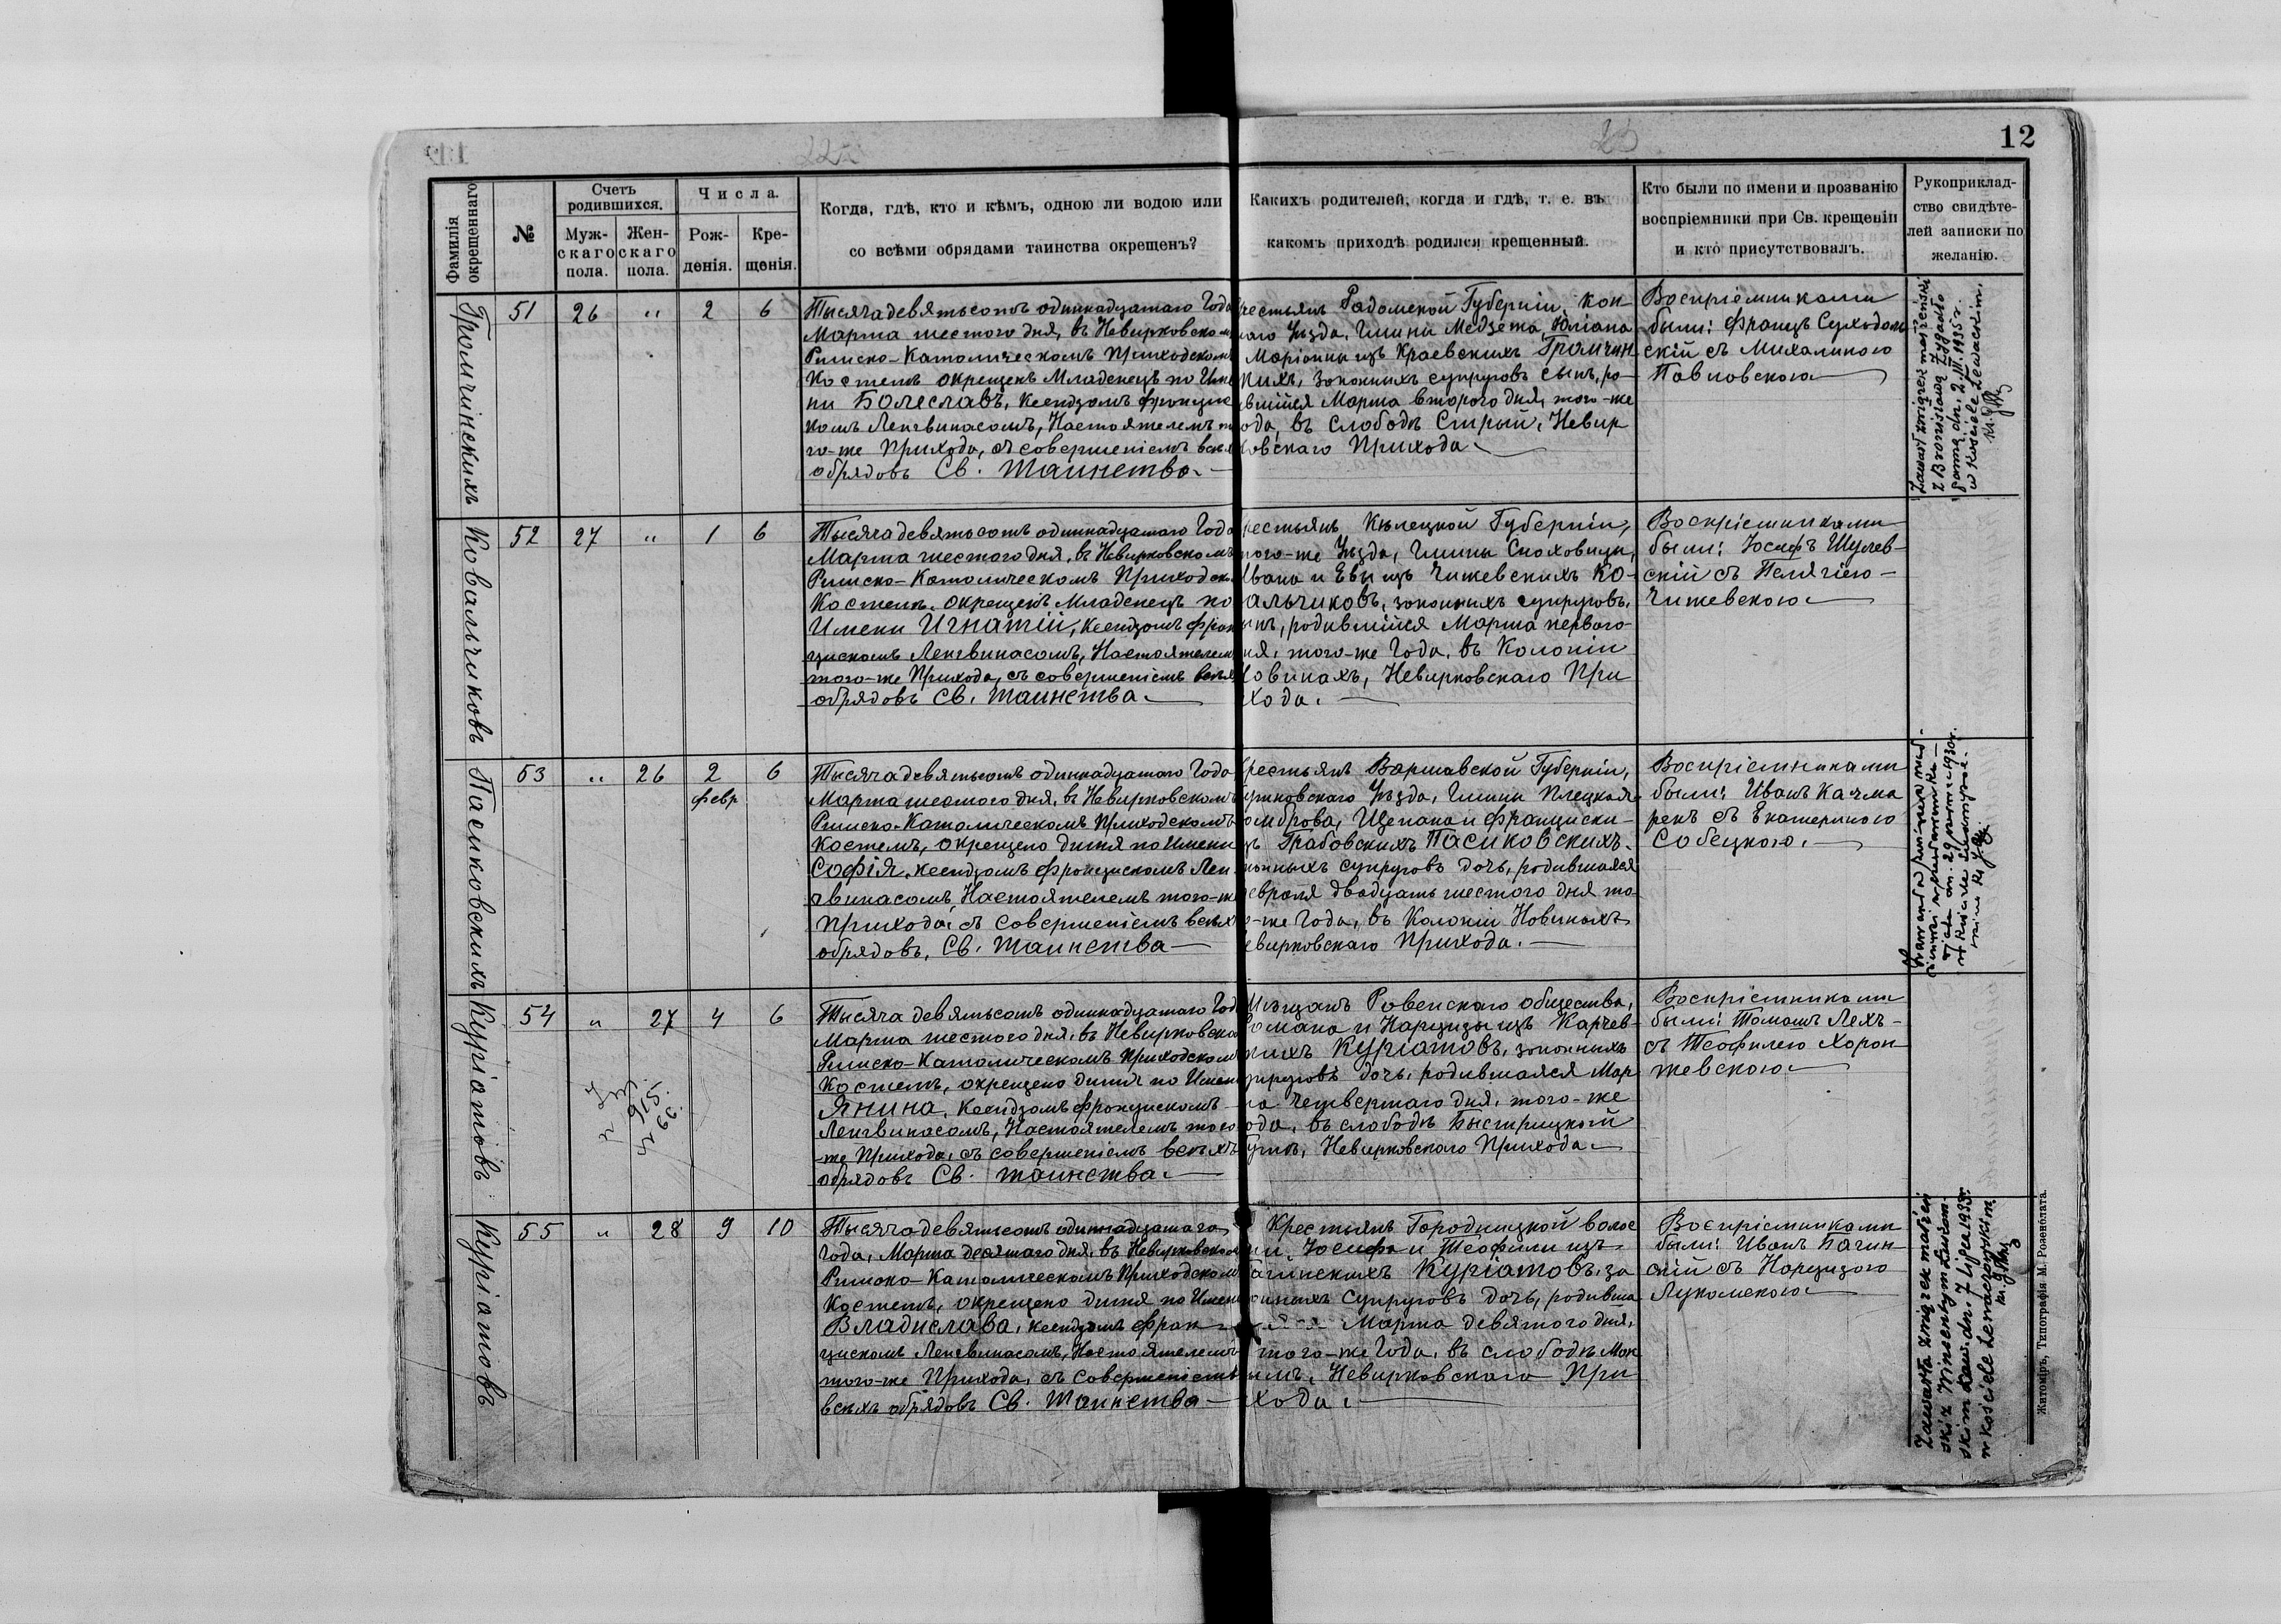 12
22
23
Фамилія окрещеннаго
№
Счетъ родившихся.
Муж-скаго пола.
Жен-скаго пола.
Числа.
Рож-денія.
Кре-щенія.
Когда, гдѣ, кто и кѣмъ, одною ли водою или
со всѣми обрядами таинства окрещенъ?
Какихъ родителей, когда и гдѣ, т. е. въ
какомъ приходѣ родился крещенный.
Кто были по имени и прозванію
воспріемники при Св. крещеніи
и кто присутствовалъ.
Рукоприклад-
ство свидѣте-
лей записки по
желанію.
Громчинскихъ
51 26 " 2 6
Тысяча девятьсотъ одиннадцатаго Года
Марта шестого дня, въ Невирковскомъ
Римско-Католическомъ Приходскомъ
Костелѣ окрещенъ Младенецъ по Име
ни Болеславъ, Ксендзомъ Францис
комъ Ленгвинасомъ, Настоятелемъ т
го-же Прихода, съ совершеніемъ всѣх
обрядовъ Св. Таинства.
рестьянъ Радомской Губерніи, Кон
каго Уѣзда, Гмины Медзета, Юліана
Маріанны изъ Краевскихъ Громчин
кихъ, законныхъ супруговъ сынъ, ро-
вшійся Марта второго дня, того-же
ода, въ слободѣ Стрый, Невир
ковскаго Прихода.
Воспріемниками
были: Францъ Суходоль
скій съ Михалиною
Павловскою
Zawarł związek małżeński
z Bronisławą Zygadło
panną dn. 2. III. 1935 r.
w Kościele Lewackim.
Ковальчиковъ
52 27 " 1 6
Тысяча девятьсотъ одиннадцатаго Года
Марта шестого дня, въ Невирковскомъ
Римско-Католическомъ Приходск.
Костелѣ, окрещенъ Младенецъ по
Имени Игнатій, Ксендзомъ Фран
цискомъ Ленгвинасомъ, Настоятелем
того-же Прихода, съ совершеніемъ всѣхъ
обрядовъ Св. Таинства.
рестьянъ Кѣлецкой Губерніи,
того-же Уѣзда, Гмины Снoховицы,
Ивана и Евы изъ Чижевскихъ Ко-
альчиковъ, законныхъ супруговъ,
ынъ, родившійся Марта перваго
ня, того-же Года, въ Колоніи
Новинахъ, Невирковскаго При
хода.
Воспріемниками
были: Іосифъ Шулев-
скій съ Пелагіею
Чижевскою
Пасиковскихъ
53 " 26 2 6
февр
Тысяча девятьсотъ одиннадцатаго Года
Марта шестого дня, въ Невирковскомъ
Римско-Католическомъ Приходскомъ
Костелѣ, окрещено дитя по Имени
Софія, Ксендзомъ Францискомъ Лен
гвинасомъ, Настоятелемъ того-же
Прихода, съ совершеніемъ всѣхъ
обрядовъ, Св. Таинства
рестьянъ Варшавской Губерніи,
утновскаго Уѣзда, Гмины Плецкая
омброва, Щепана и Франциски
зъ Грабовскихъ Пасиковскихъ,
конныхъ супруговъ дочь, родившаяся
евраля двадцать шестого дня то
о-же Года, въ Колоніи Новинахъ
евирковскаго Прихода.
Воспріемниками
были: Иванъ Качма
рекъ съ Екатериною
Собецкою.
Куріатовъ
54 " 27 4 6
Тысяча девятьсотъ одиннадцатаго Год
Марта шестого дня, въ Невирковском
Римско-Католическомъ Приходском
Костелѣ, окрещено дитя по Имен
Янина, Ксендзомъ Францискомъ
Ленгвинасомъ, Настоятелемъ того
же Прихода, съ совершеніемъ всѣхъ
обрядовъ Св. Таинства.
Мѣщанъ Ровенскаго общества,
Романа и Нарцизы изъ Карчев-
скихъ Куріатовъ, законныхъ
упруговъ дочь, родившаяся Мар
та четвертаго дня, того-же
ода, въ слободѣ Быстрицкой
Гутѣ, Невирковскаго Прихода
Воспріемниками
были: Томашъ Лехъ
съ Теофилею Хорон
жевскою
Куріатовъ
55 " 28 9 10
Тысяча девятьсотъ одиннадцатаго
Года, Марта десятаго дня, въ Невирковском
Римско-Католическомъ Приходском
Костелѣ, окрещено дитя по Имени
Владислава, Ксендзомъ Фран
цискомъ Ленгвинасомъ, Настоятелемъ
того-же Прихода, съ совершеніемъ
всѣхъ обрядовъ Св. Таинства
Крестьянъ Городницкой волос
ти, Іосифа и Теофили изъ
Багинскихъ Куріатовъ, за
онныхъ супруговъ дочь, родивша
яся Марта девятого дня,
того-же Года, въ слободѣ Мок
Невирковскаго При
хода.
Воспріемниками
были: Иванъ Багин
скій съ Нарцизою
Лукомскою
Zawarła związek małżeń
ski z Wincentym
skim kaw. dn. 7 lipca 1935 r.
w kościele
Житоміръ, Типографія М. Розенблата.